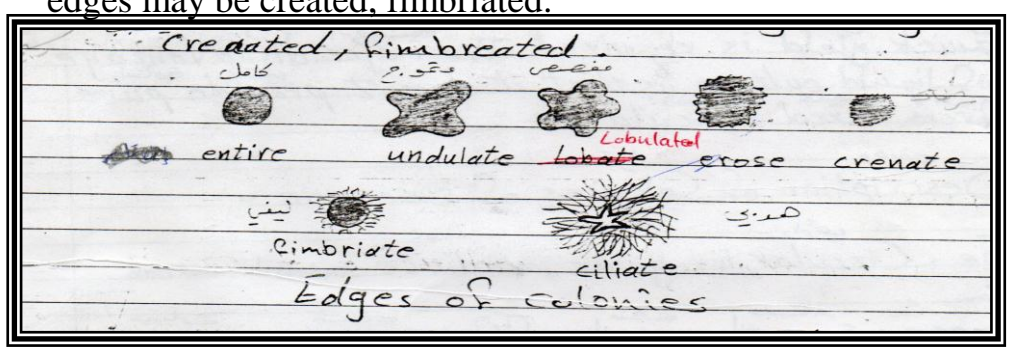 edges may be created, fimbriated.
Creaated, Fimbreated
كامل متموج مفصص
Lobulated
entire undulate lobate erose crenate
ليفي هدبي
fimbriate
ciliate
Edges of colonies